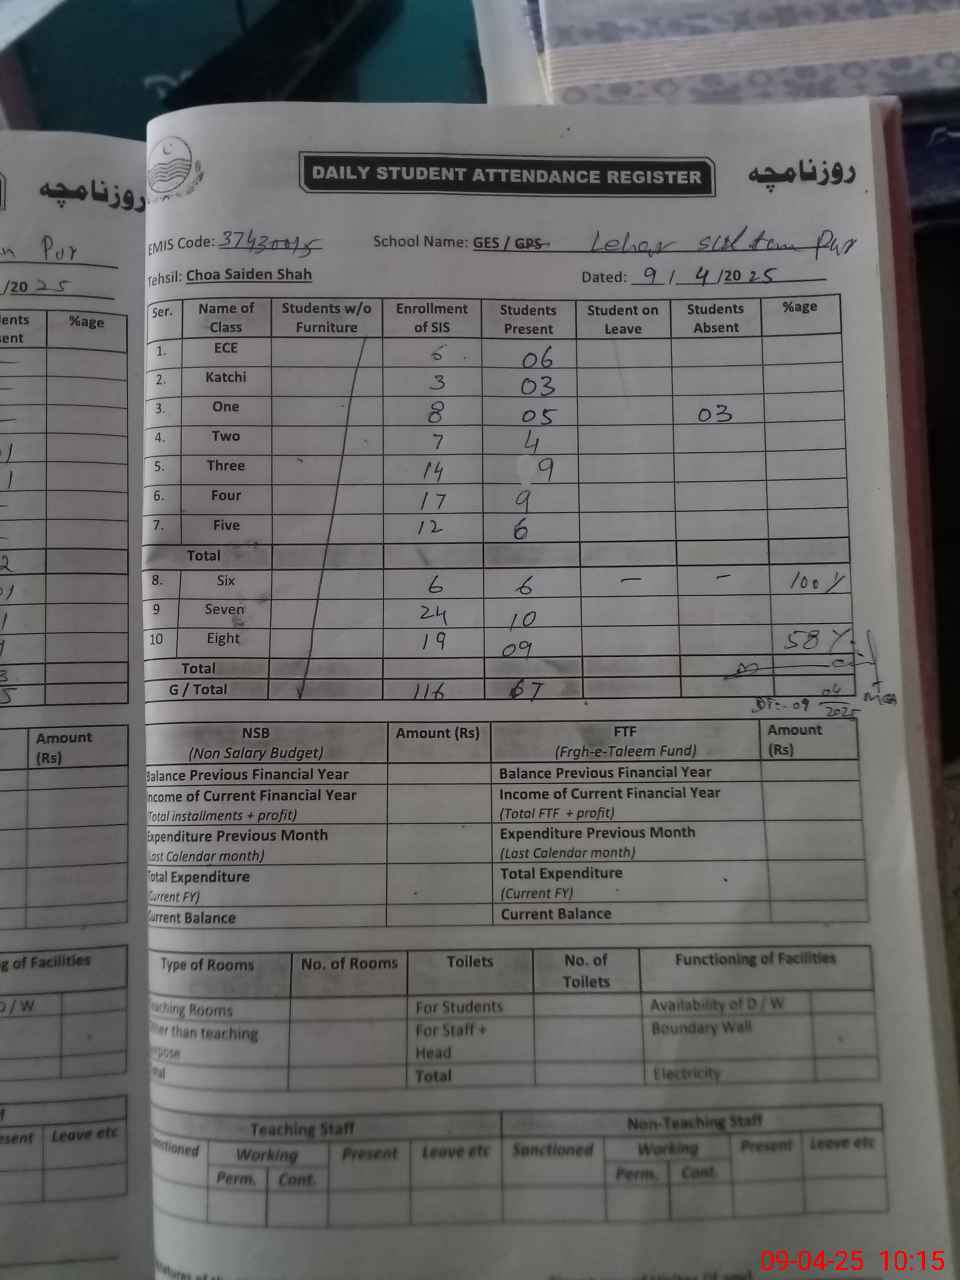 روزنامچہ
DAILY STUDENT ATTENDANCE REGISTER
روزنامچہ
Pur
EMIS Code: 37430015 School Name: GES / GPS Lehar Sultan Pur
/20 25
Tehsil: Choa Saiden Shah Dated: 9 / 4 /20 25
%age
Ser. Name of Class Students w/o Furniture Enrollment of SIS Students Present Student on Leave Students Absent %age
1. ECE 6 06
2. Katchi 3 03
3. One 8 05 03
4. Two 7 4
5. Three 14 9
6. Four 17 9
7. Five 12 6
Total
8. Six 6 6 — — 100%
9 Seven 24 10
10 Eight 19 09 58%
Total
G / Total 116 67
DT:- 09 04 2025
Amount (Rs)
NSB (Non Salary Budget) Amount (Rs) FTF (Frgh-e-Taleem Fund) Amount (Rs)
Balance Previous Financial Year Balance Previous Financial Year
Income of Current Financial Year Income of Current Financial Year
(Total installments + profit) (Total FTF + profit)
Expenditure Previous Month Expenditure Previous Month
(Last Calendar month) (Last Calendar month)
Total Expenditure Total Expenditure
(Current FY) (Current FY)
Current Balance Current Balance
g of Facilities
Type of Rooms No. of Rooms Toilets No. of Toilets Functioning of Facilities
D / W
Teaching Rooms For Students Availability of D / W
Other than teaching purpose For Staff + Head Boundary Wall
Total Total Electricity
Teaching Staff Non-Teaching Staff
Leave etc
Sanctioned Working Present Leave etc Sanctioned Working Present Leave etc
Perm. Cont. Perm. Cont.
09-04-25 10:15